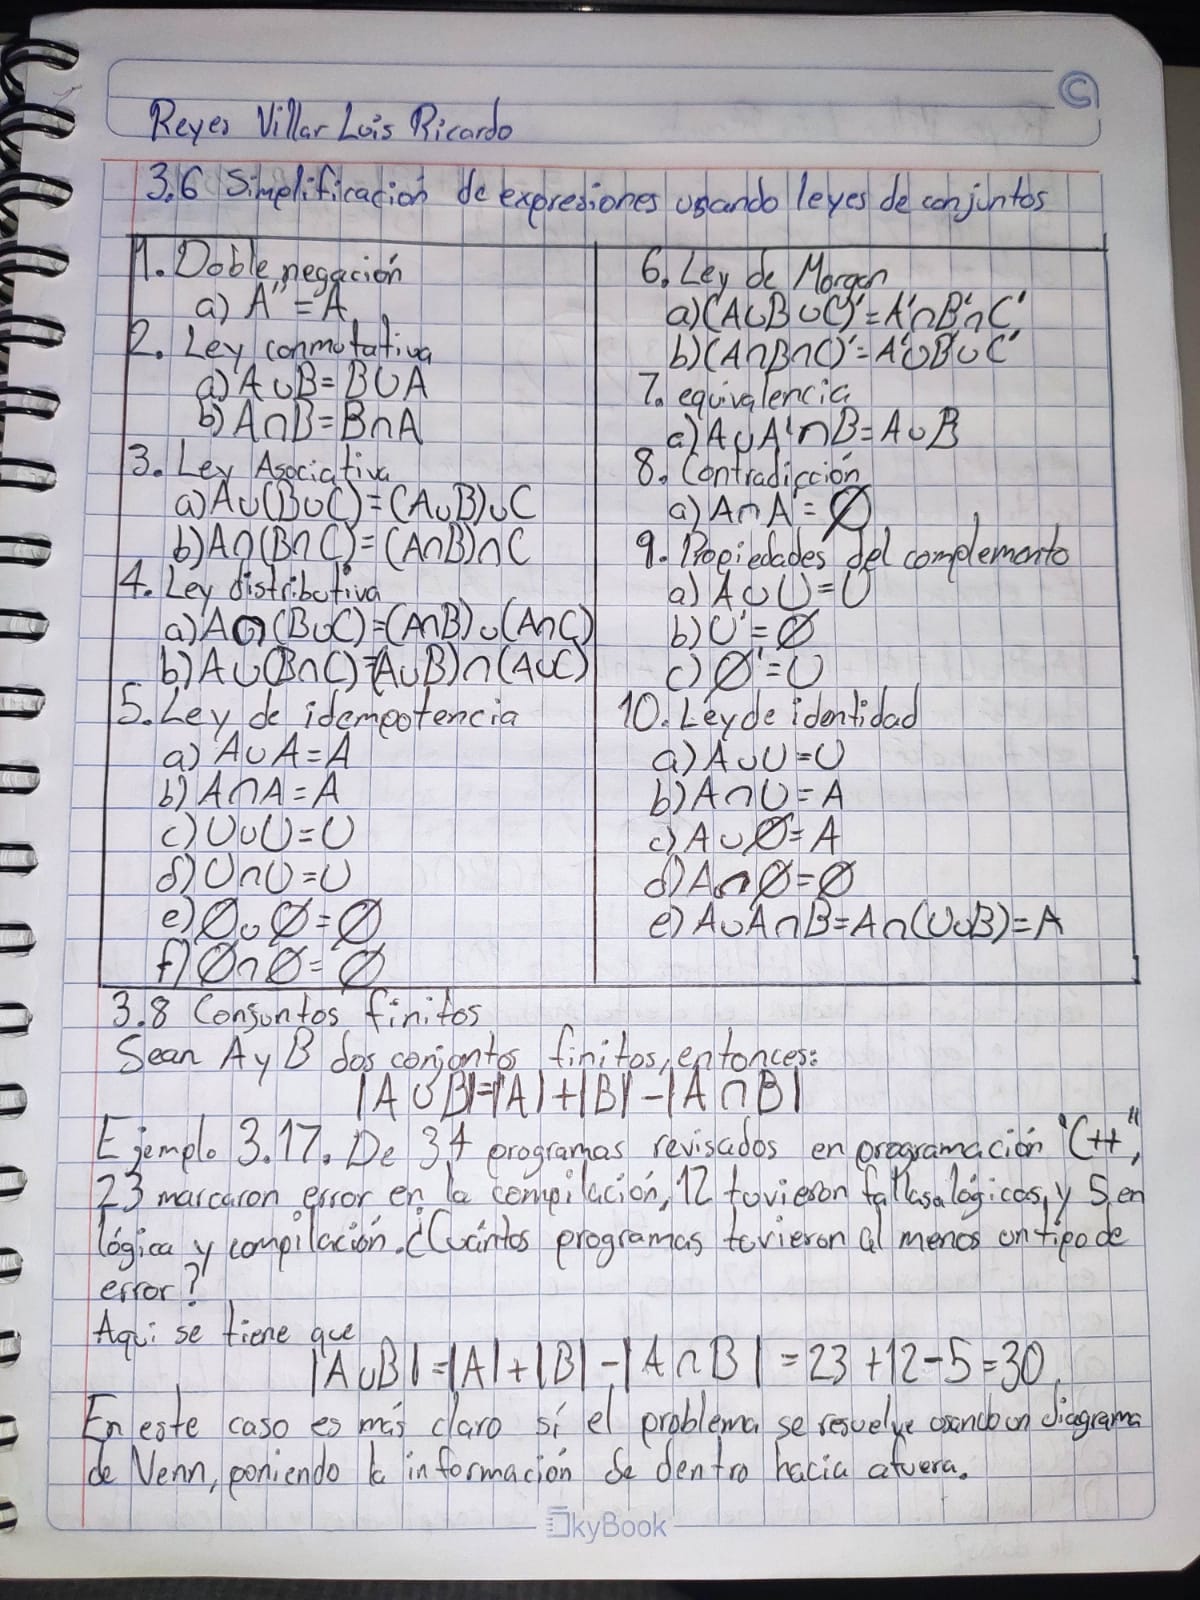 Reyes Villar Luis Ricardo
3.6 Simplificación de expresiones usando leyes de conjuntos
1. Doble negación
a) A'' = A
2. Ley conmutativa
a) A∪B = B∪A
b) A∩B = B∩A
3. Ley Asociativa
a) A∪(B∪C) = (A∪B)∪C
b) A∩(B∩C) = (A∩B)∩C
4. Ley distributiva
a) A∩(B∪C) = (A∩B)∪(A∩C)
b) A∪(B∩C) = (A∪B)∩(A∪C)
5. Ley de idempotencia
a) A∪A = A
b) A∩A = A
c) U∪U = U
d) U∩U = U
e) ∅∪∅ = ∅
f) ∅∩∅ = ∅
6. Ley de Morgan
a) (A∪B∪C)' = A'∩B'∩C'
b) (A∩B∩C)' = A'∪B'∪C'
7. equivalencia
a) A∪A'∩B = A∪B
8. Contradicción
a) A∩A' = ∅
9. Propiedades del complemento
a) A∪U = U
b) U' = ∅
c) ∅' = U
10. Ley de identidad
a) A∪U = U
b) A∩U = A
c) A∪∅ = A
d) A∩∅ = ∅
e) A∪A∩B = A∩(U∪B) = A
3.8 Conjuntos finitos
Sean A y B dos conjuntos finitos, entonces:
|A∪B| = |A| + |B| - |A∩B|
Ejemplo 3.17. De 34 programas revisados en programación "C++",
23 marcaron error en la compilación, 12 tuvieron fallas lógicas, y 5 en
lógica y compilación. ¿Cuántos programas tuvieron al menos un tipo de
error?
Aqui se tiene que
|A∪B| = |A| + |B| - |A∩B| = 23 + 12 - 5 = 30.
En este caso es más claro sí el problema se resuelve usando un diagrama
de Venn, poniendo la información de dentro hacia afuera.
SkyBook